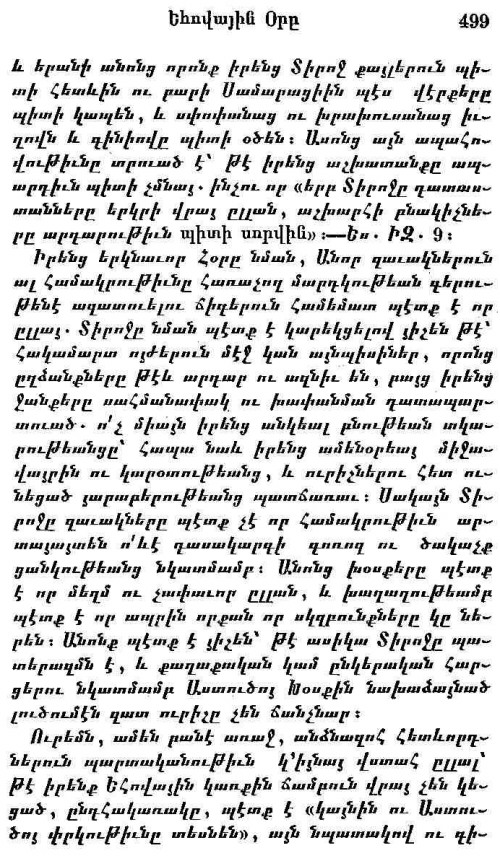 Եհովային Օրը 499
և երանի անոնց որոնք իրենց Տիրոջ քայլերուն պի-
տի հետևին ու բարի Սամարացիին պէս վէրքերը
պիտի կապեն, և սփոփանաց ու խրախուսանաց իւ-
ղովն և գինիովը պիտի օծեն։ Ասոնց այն ապահո-
վութիւնը տրուած է՝ թէ իրենց աշխատանքը ապ-
արդիւն պիտի չմնայ. ինչու որ «երբ Տիրոջը դատաս-
տանները երկրի վրայ ըլլան, աշխարհի բնակիչնե-
րը արդարութիւն պիտի սորվին»։—Ես. ԻԶ. 9։
Իրենց երկնաւոր Հօրը նման, Անոր զաւակներուն
ալ համակրութիւնը հառաչող մարդկութեան գերու-
թենէ ազատուելու ճիգերուն համեմատ պէտք է որ
ըլլայ. Տիրոջը նման պէտք է կարեկցելով յիշեն թէ՝
Հակամարտ ոյժերուն մէջ կան այնպիսիներ, որոնց
ըղձանքները թէև արդար ու ազնիւ են, բայց իրենց
ջանքերը սահմանափակ ու խափանման դատապար-
տուած. ո՛չ միայն իրենց անկեալ բնութեան տկա-
րութեանցը՝ հապա նաև իրենց ամենօրեայ միջա-
վայրին ու կարօտութեանց, և ուրիշներու հետ ու-
նեցած յարաբերութեանց պատճառաւ։ Սակայն Տի-
րոջը զաւակները պէտք չէ որ համակրութիւն ար-
տայայտեն ո՛ևէ դասակարգի գոռոզ ու ծակաչք
ցանկութեանց նկատմամբ։ Անոնց խօսքերը պէտք
է որ մեղմ ու չափաւոր ըլլան, և խաղաղութեամբ
պէտք է որ ապրին որքան որ սկզբունքները կը նե-
րեն։ Անոնք պէտք է յիշեն՝ թէ ասիկա Տիրոջը պա-
տերազմն է, և քաղաքական կամ ընկերական հար-
ցերու նկատմամբ Աստուծոյ Խօսքին նախաձայնած
լուծումէն զատ ուրիշը չեն ճանչնար։
Ուրեմն, ամեն բանէ առաջ, անձնազոհ հետևորդ-
ներուն պարտականութիւն կ՚իյնայ վստահ ըլլալ՝
թէ իրենք Եհովային կառքին ճամբուն վրայ չեն կե-
ցած, ընդհակառակը, պէտք է «կայնին ու Աստու-
ծոյ փրկութիւնը տեսնեն», այն նպատակով ու գի-